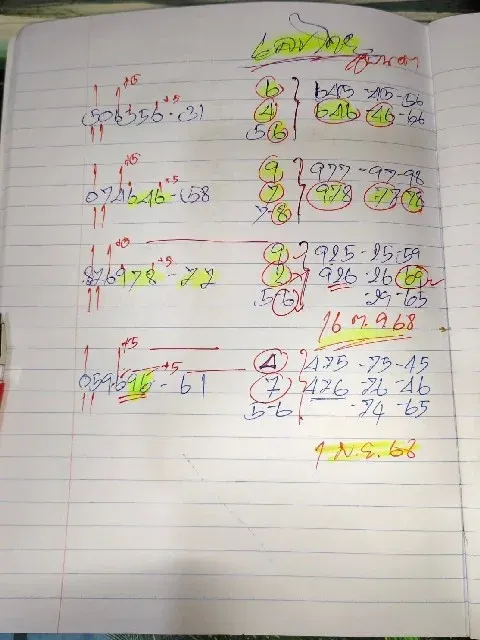 เลขไทย
+5 +5
506356-31
6
4
5 6
645-45-56
646-46-66
+5 +5
074646-58
9
7
7-8
977-97-98
978 77 78
+5 +5
876978-77
9
2
5 6
925-25-59
926-26 69
29-65
16 ก.ค 68
+5 +5
059696-61
4
7
5-6
475-75-45
476-76-46
74-65
1 ส.ค. 68